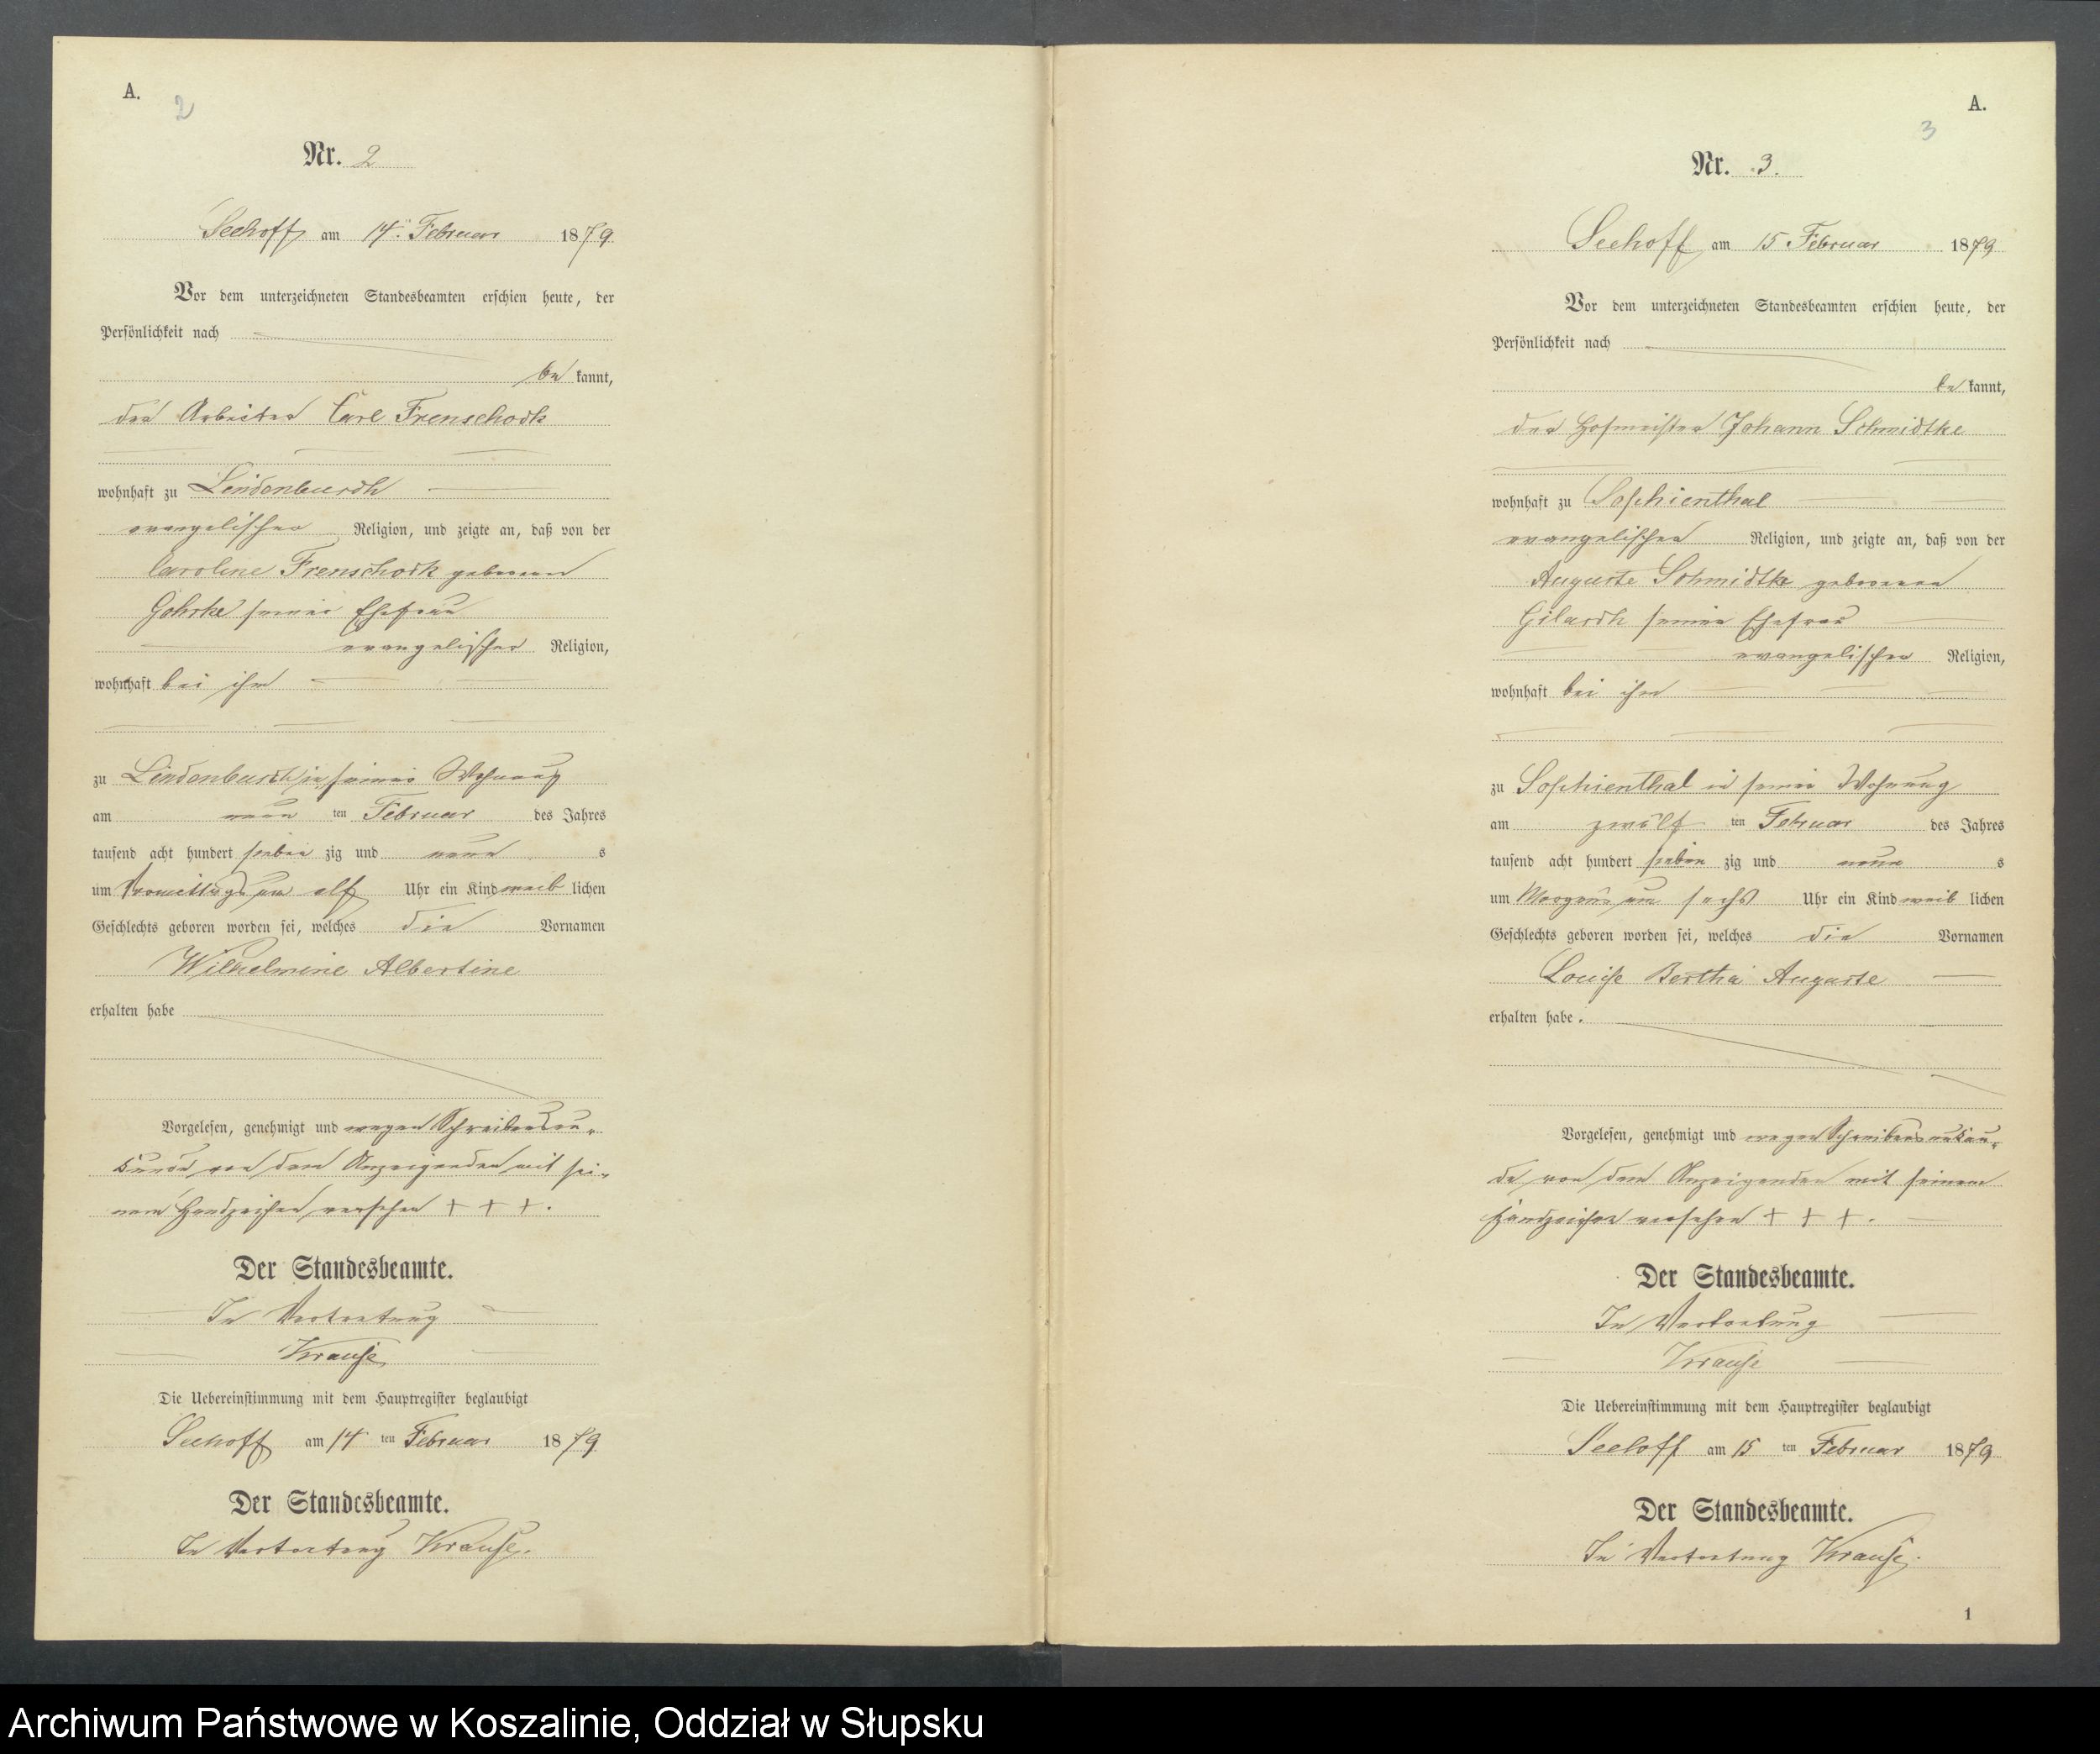 A.
2
Nr. 2
Seehoff am 14. Februar 1879
Vor dem unterzeichneten Standesbeamten erschien heute, der
Persönlichkeit nach
be kannt,
der Arbeiter Carl Frenschock
wohnhaft zu Lindenbusch
evangelischer Religion, und zeigte an, daß von der
Caroline Frenschock geborenen
Gohrke seiner Ehefrau
evangelischer Religion,
wohnhaft bei ihm
zu Lindenbusch in seiner Wohnung
am neun ten Februar des Jahres
tausend acht hundert sieben zig und neun s
um Vormittags um elf Uhr ein Kind weib lichen
Geschlechts geboren worden sei, welches die Vornamen
Wilhelmine Albertine
erhalten habe
Vorgelesen, genehmigt und wegen Schreibensun-
kunde von dem Anzeigenden mit sei-
nem Handzeichen versehen + + +.
Der Standesbeamte.
In Vertretung
Krause
Die Uebereinstimmung mit dem Hauptregister beglaubigt
Seehoff am 14 ten Februar 1879
Der Standesbeamte.
In Vertretung Krause.
A.
3
Nr. 3.
Seehoff am 15 Februar 1879
Vor dem unterzeichneten Standesbeamten erschien heute, der
Persönlichkeit nach
be kannt,
der Hofmeister Johann Schmidtke
wohnhaft zu Sophienthal
evangelischer Religion, und zeigte an, daß von der
Auguste Schmidtke geborenen
seiner Ehefrau
evangelischer Religion,
wohnhaft bei ihm
zu Sophienthal in seiner Wohnung
am zwölf ten Februar des Jahres
tausend acht hundert sieben zig und neun s
um Morgens um sechs Uhr ein Kind weib lichen
Geschlechts geboren worden sei, welches die Vornamen
Louise Bertha Auguste
erhalten habe.
Vorgelesen, genehmigt und wegen Schreibensunkun-
de von dem Anzeigenden mit seinem
Handzeichen versehen + + +.
Der Standesbeamte.
In Vertretung
Krause
Die Uebereinstimmung mit dem Hauptregister beglaubigt
Seehoff am 15 ten Februar 1879
Der Standesbeamte.
In Vertretung Krause.
1
Archiwum Państwowe w Koszalinie, Oddział w Słupsku